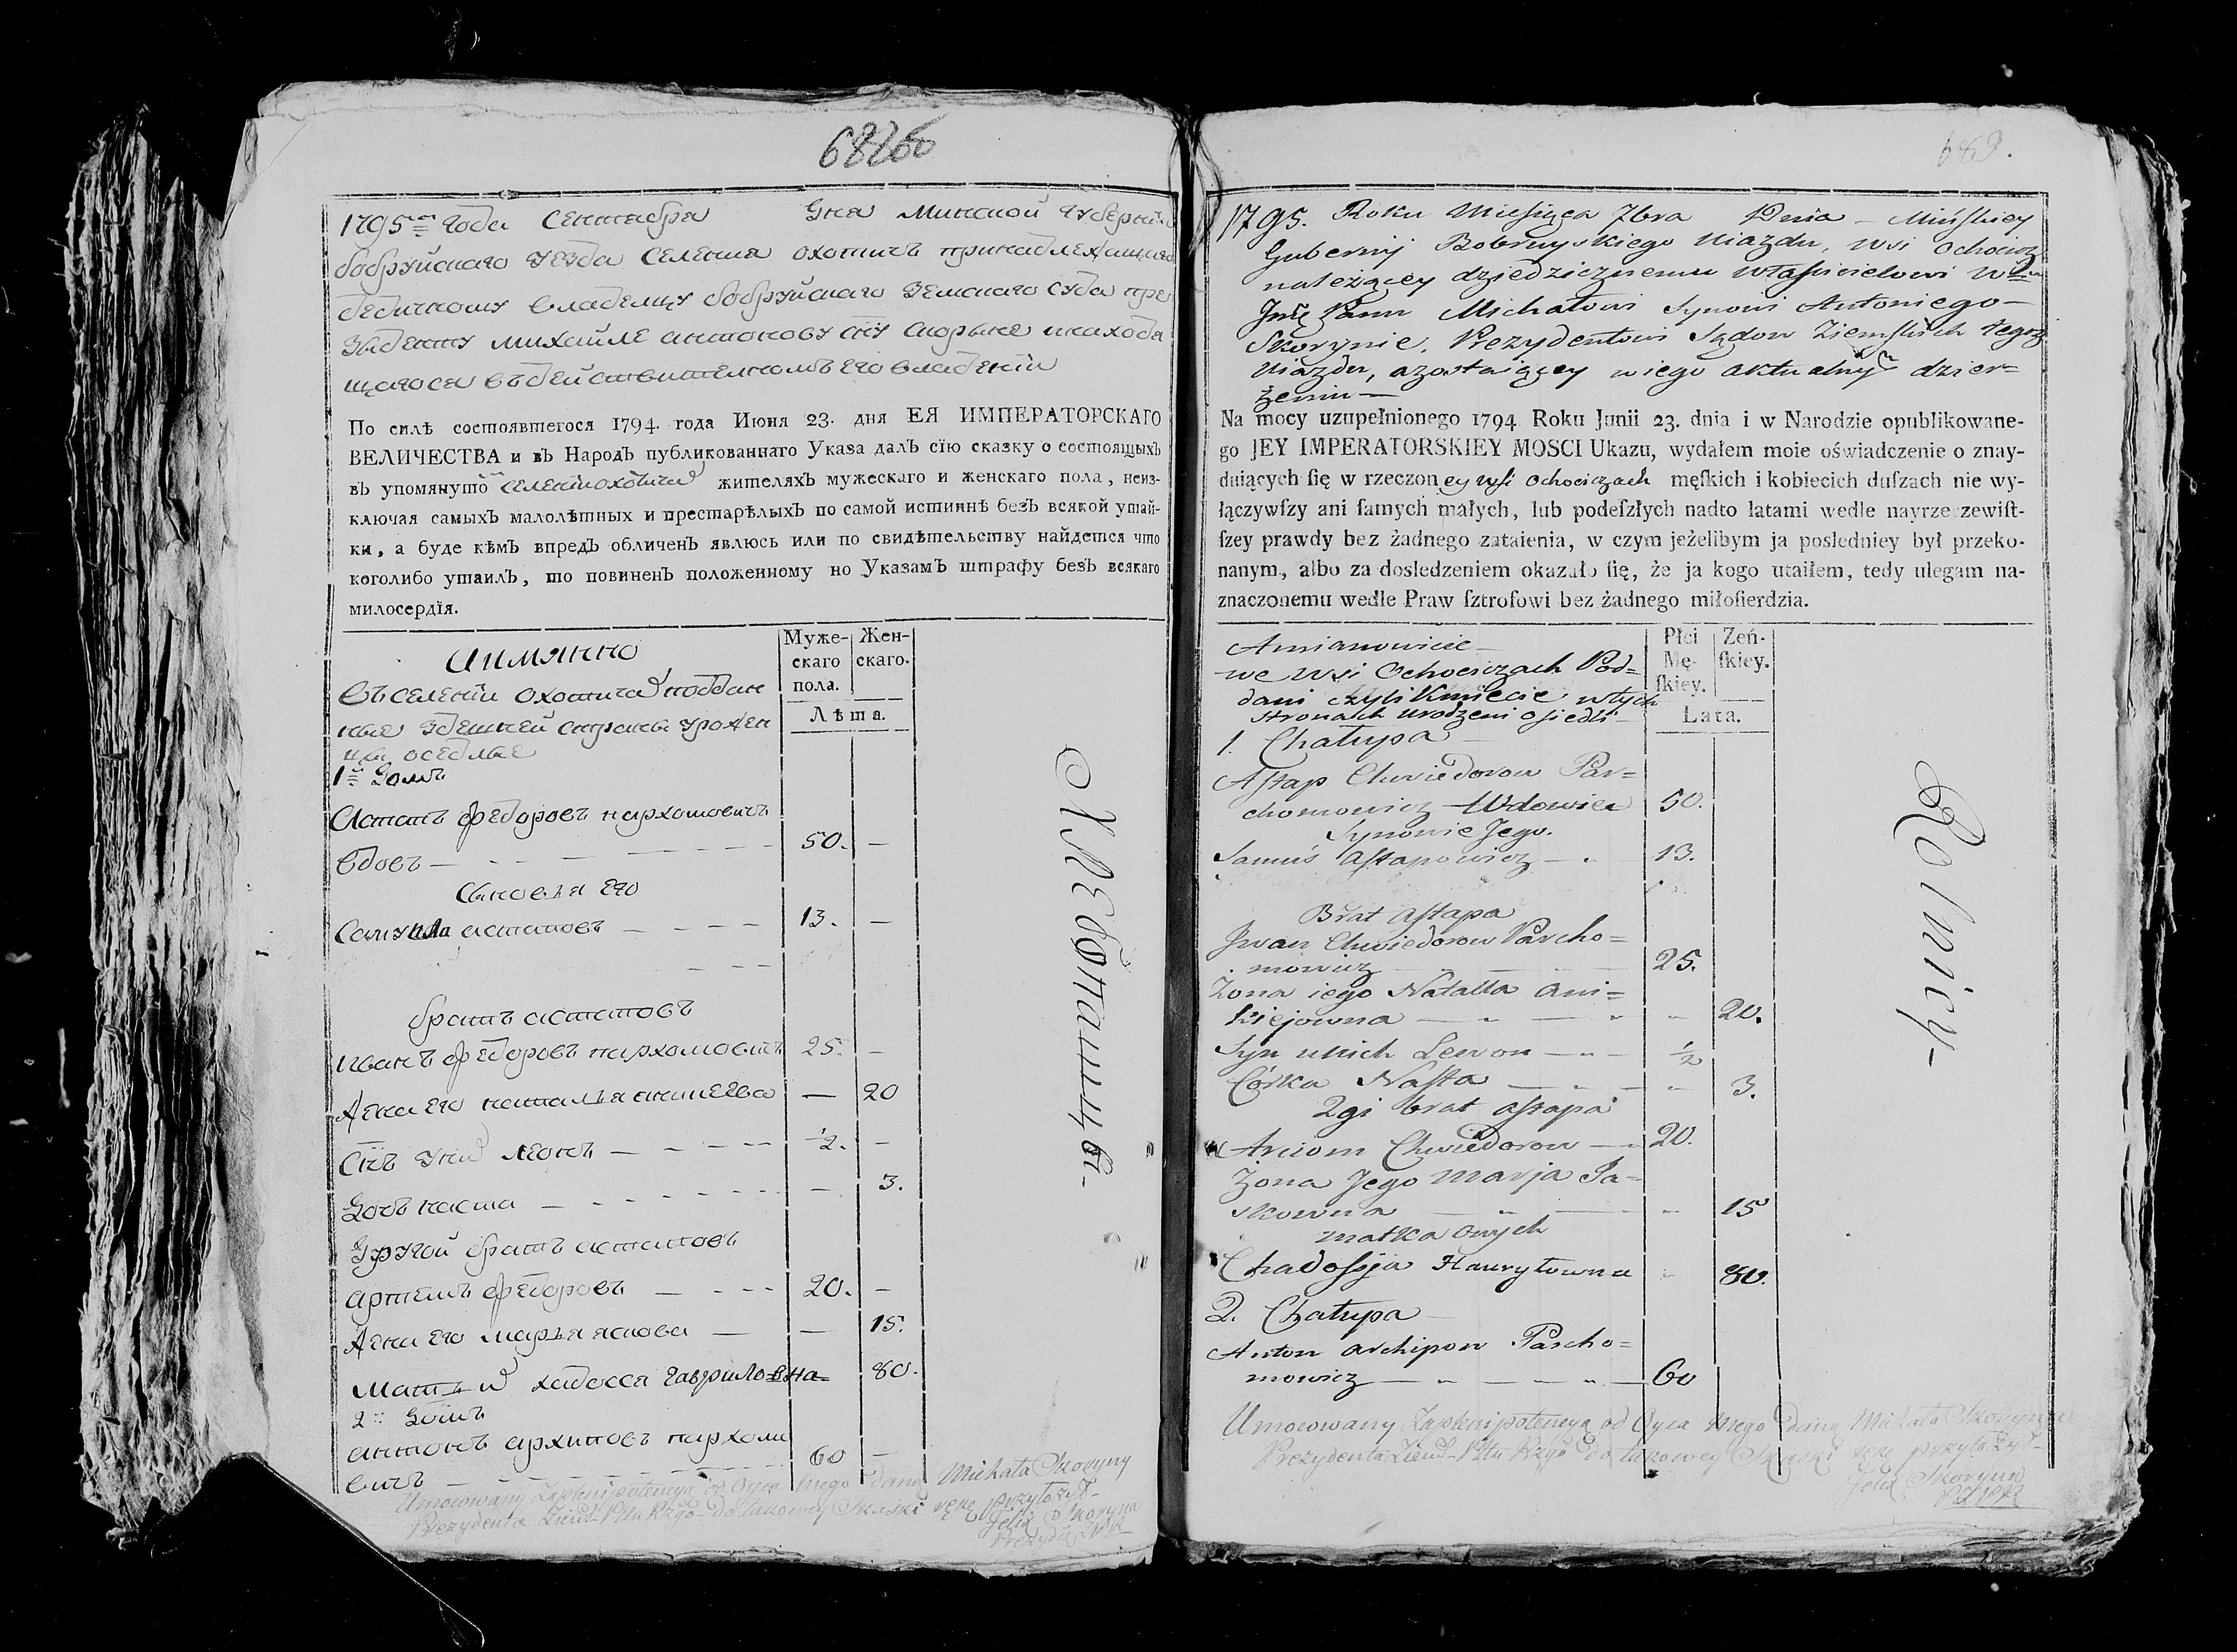 1795го года Сентабра Дня Минской Губерніи
бобруйскаго уезда Селения охотичъ принадлежащаго
дедичному владелцу бобруйскаго земскаго суда пре
зыденту михайле антонову сну скорыне инаходя
щагося въдействителномъ его владеніи
По силѣ состоявшегося 1794. года Июня 23. дня ЕЯ ИМПЕРАТОРСКАГО
ВЕЛИЧЕСТВА и въ Народъ публикованнаго Указа далъ сїю сказку о состоящыхъ
въ упомянутo селеніи охотичах жителяхъ мужескаго и женскаго пола, неиз-
ключая самыхъ малолѣтныхъ и престарѣлыхъ по самой истиннѣ безъ всякой утай-
ки, а буде кѣмъ впредъ обличенъ явлюсь или по свидѣтельству найдется что
коголибо утаилъ, то повиненъ положенному по Указамъ штрафу безъ всякаго
милосердїя.
Аимянно
Муже-
скаго
пола.
Жен-
скаго.
Лѣта.
въселеніи охотичах поддан
ные здешней стороны урожен
цы оседлые
1й Домъ
Астапъ федоровъ пархомовичъ
вдовъ — 50. —
Сыновья его
Самуйла астаповъ — 13. —
братъ астаповъ
Иванъ федоровъ пархомовичъ 25. —
Жена его наталья аникеева — 20
Снъ у них леонъ — ½. —
Дочь наста — — 3.
Другой братъ астаповъ
артемъ федоровъ — 20. —
Жена его марья яскова — — 15.
Мать их хадосся гавриловна 80.
2й Домъ
антонъ архиповъ пархомо
вичъ — 60 —
Хлебопашцы.
Umocowany Zaplenipotencyą od Oyca mego daną Michała Skoryny
Prezydenta Ziems. Pttu Rzgo do takowey Skaski rękę przyłożył-
Felix Skoryna
689.
1795. Roku Miesiąca 7bra Dnia — Mińskiey
Gubernij Bobruyskiego Uiazdu, wsi Ochocicz
należącey dziedzicznemu właścicielowi W
Jmę Panu Michałowi Synowi Antoniego —
Skorynie, Prezydentowi Sądow Ziemskich tegoż
Uiazdu, azostaiącey wiego aktualnym dzier=
żeniu —
Na mocy uzupełnionego 1794 Roku Junii 23. dnia i w Narodzie opublikowane-
go JEY IMPERATORSKIEY MOSCI Ukazu, wydałem moie oświadczenie o znay-
duiących ſię w rzeczoney wsi Ochociczach męſkich i kobiecich duſzach nie wy-
łączywſzy ani ſamych małych, lub podeſzłych nadto latami wedle nayrzeczewiſt-
ſzey prawdy bez żadnego zataienia, w czym jeżelibym ja posledniey był przeko-
nanym, albo za dosledzeniem okazało ſię, że ja kogo utaiłem, tedy ulegam na-
znaczonemu wedle Praw ſztrofowi bez żadnego miłoſierdzia.
Amianowicie —
Płci
Mę-
ſkiey.
Żeń-
ſkiey.
Lata.
we wsi Ochociczach Pod=
dani czyli Kmiecie wtych
stronach urodzeni osiedli
1. Chałupa
Astap Chwiedorow Par=
chomowicz Wdowiec 50.
Synowie Jego.
Samuś Astapowicz — 13.
Brat Astapa
Jwan Chwiedorow Parcho=
mowicz 25.
Żona iego Natalla Ani=
kiejowna — 20.
Syn unich Lewon — ½
Córka Nasta — 3.
2gi brat Astapa
Arciom Chwiedorow — 20.
Żona Jego Marja Ja=
skowna 15
matka onych
Chadosja Hawryłowna 80.
2. Chałupa
Anton Archipow Parcho=
mowicz — 60
Rolnicy-
Umocowany Zaplenipotencyą od Oyca mego daną Michała Skoryny
Prezydenta Ziems. Pttu Rzgo do takowey Skaski rękę przyłożył-
Felix Skoryna